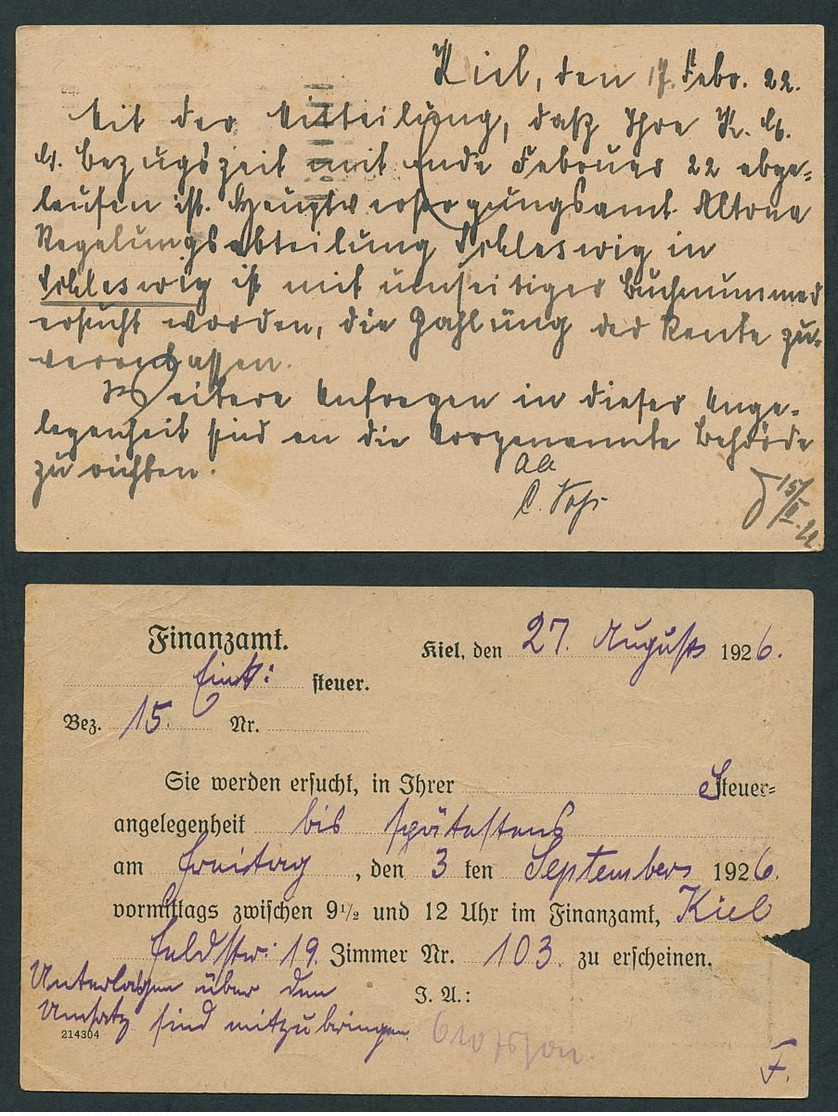 Kiel, den 17. Febr. 22.
Mit der Mitteilung, daß Ihre K. G.
G. Bezugszeit mit Ende Februar 22 abge-
laufen ist. Hauptversorgungsamt Altona
Regelungsabteilung Schleswig in
Schleswig ist mit umseitiger Buchnummer
ersucht worden, die Zahlung der Rente zu
veranlassen.
Weitere Anfragen in dieser Ange-
legenheit sind an die vorgenannte Behörde
zu richten.
C. Voß
15/II. 22.
Finanzamt.
Kiel, den 27. August 1926.
Eink: steuer.
Bez. 15. Nr.
Sie werden ersucht, in Ihrer Steuer-
angelegenheit bis spätestens
am Freitag, den 3 ten September 1926.
vormittags zwischen 9½ und 12 Uhr im Finanzamt, Kiel
Feldstr: 19. Zimmer Nr. 103. zu erscheinen.
Unterlagen über den
J. A.:
Umsatz sind mitzubringen.
214304
F.